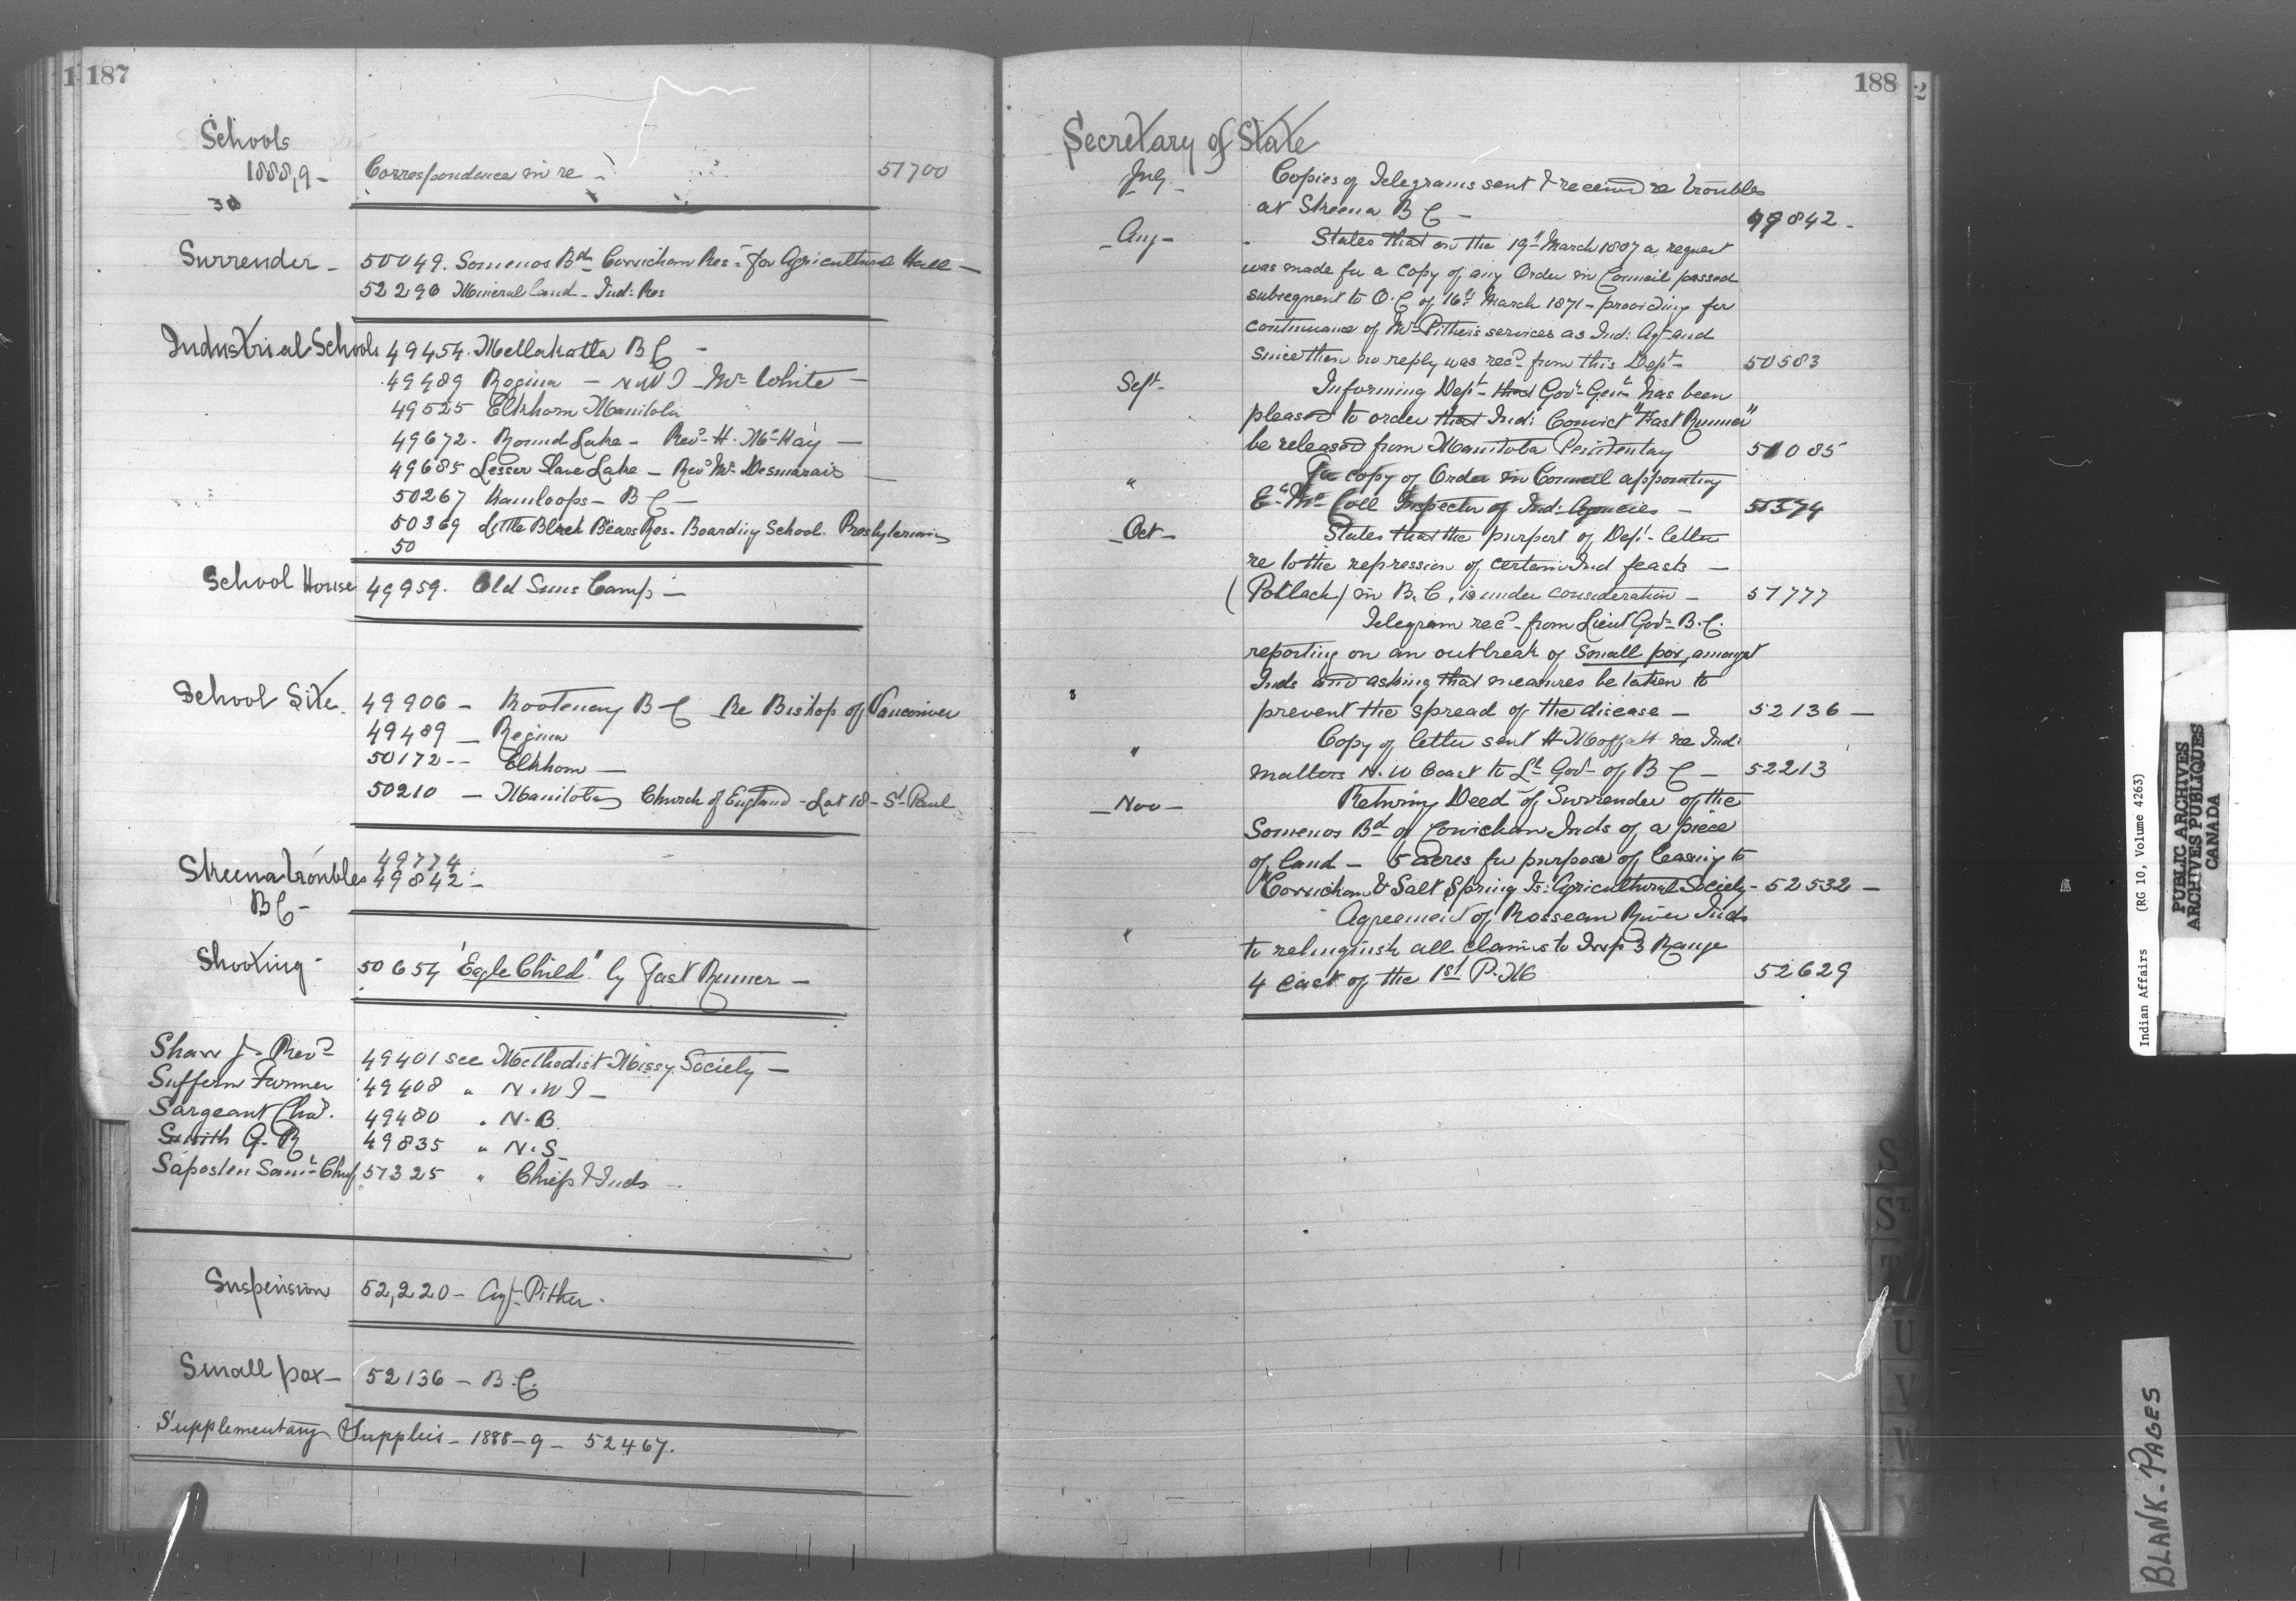 187
Schools
1888,9 - Correspondence in re - 51700
30
Surrender - 50049. Somenos Bd Cowichan Res - for Agricultural Hall -
52290 Mineral land - Ind: Res
Industrial Schools 49454. Metlakatla B C -
49489 Regina - N W T - Mr White -
49525 Elkhorn Manitoba
49672. Round Lake - Revd H. McKay -
49685 Lesser Slave Lake - Revd Mr Desmarais -
50267 Kamloops - B C -
50369 Little Black Bears Res. Boarding School. Presbyterians
50
School House 49959. Old Suns Camp -
School Site. 49906 - Kootenay B C Re Bishop of Vancouver
49489 - Regina
50172 - Elkhorn -
50210 - Manitoba Church of England - Lot 18 - St Paul
49774
Skeena troubles 49842 -
B C -
Shooting - 50654 "Eagle Child" by Fast Runner -
Shaw J. Revd 49401 see Methodist Missy Society -
Suffern Farmer 49408 " N. W T -
Sargeant Chas. 49480 " N. B.
Smith G. R 49835 " N. S -
Saposten Saml Chief 51325 " Chiefs & Inds -
Suspension 52,220 - Agt Pither.
Small pox - 52136 - B. C.
Supplementary Supplies - 1888-9 - 52467.
188
2
Secretary of State
July - Copies of Telegrams sent & received re troubles
at Skeena B C - 49842 -
Aug - States that on the 19th March 1887 a request
was made for a copy of any Order in Council passed
subsequent to O.C of 16th March 1871 - providing for
continuance of Mr Pither's services as Ind: Agt and
since then no reply was recd from this Dept - 50583
Sept - Informing Dept that Govr Genl has been
pleased to order that Ind: Convict "Fast Runner"
be released from Manitoba Penitentiary 51085
" For copy of Order in Council appointing
E. McColl Inspector of Ind: Agencies - 51374
Oct - States that the purport of Dept letter
re to the repression of certain Ind feasts -
(Potlach) in B. C, is under consideration - 51777
Telegram recd from Lieut Govr B. C.
reporting on an outbreak of Small pox, amongst
Inds and asking that measures be taken to
prevent the spread of the disease - 52136 -
" Copy of letter sent H Moffatt re Ind:
matters N. W Coast to Lt Govr of B C - 52213
Nov - Returning Deed of Surrender of the
Somenos Bd of Cowichan Inds of a piece
of land - 5 acres for purpose of leasing to
"Cowichan & Salt Spring Is: Agricultural Society - 52532 -
" Agreement of Rosseau River Inds
to relinquish all claims to Twp 3 Range
4 East of the 1st P. M 52629
S
ST.
T
U
V
W
Y
Indian Affairs (RG 10, Volume 4263)
PUBLIC ARCHIVES
ARCHIVES PUBLIQUES
CANADA
BLANK. PAGES